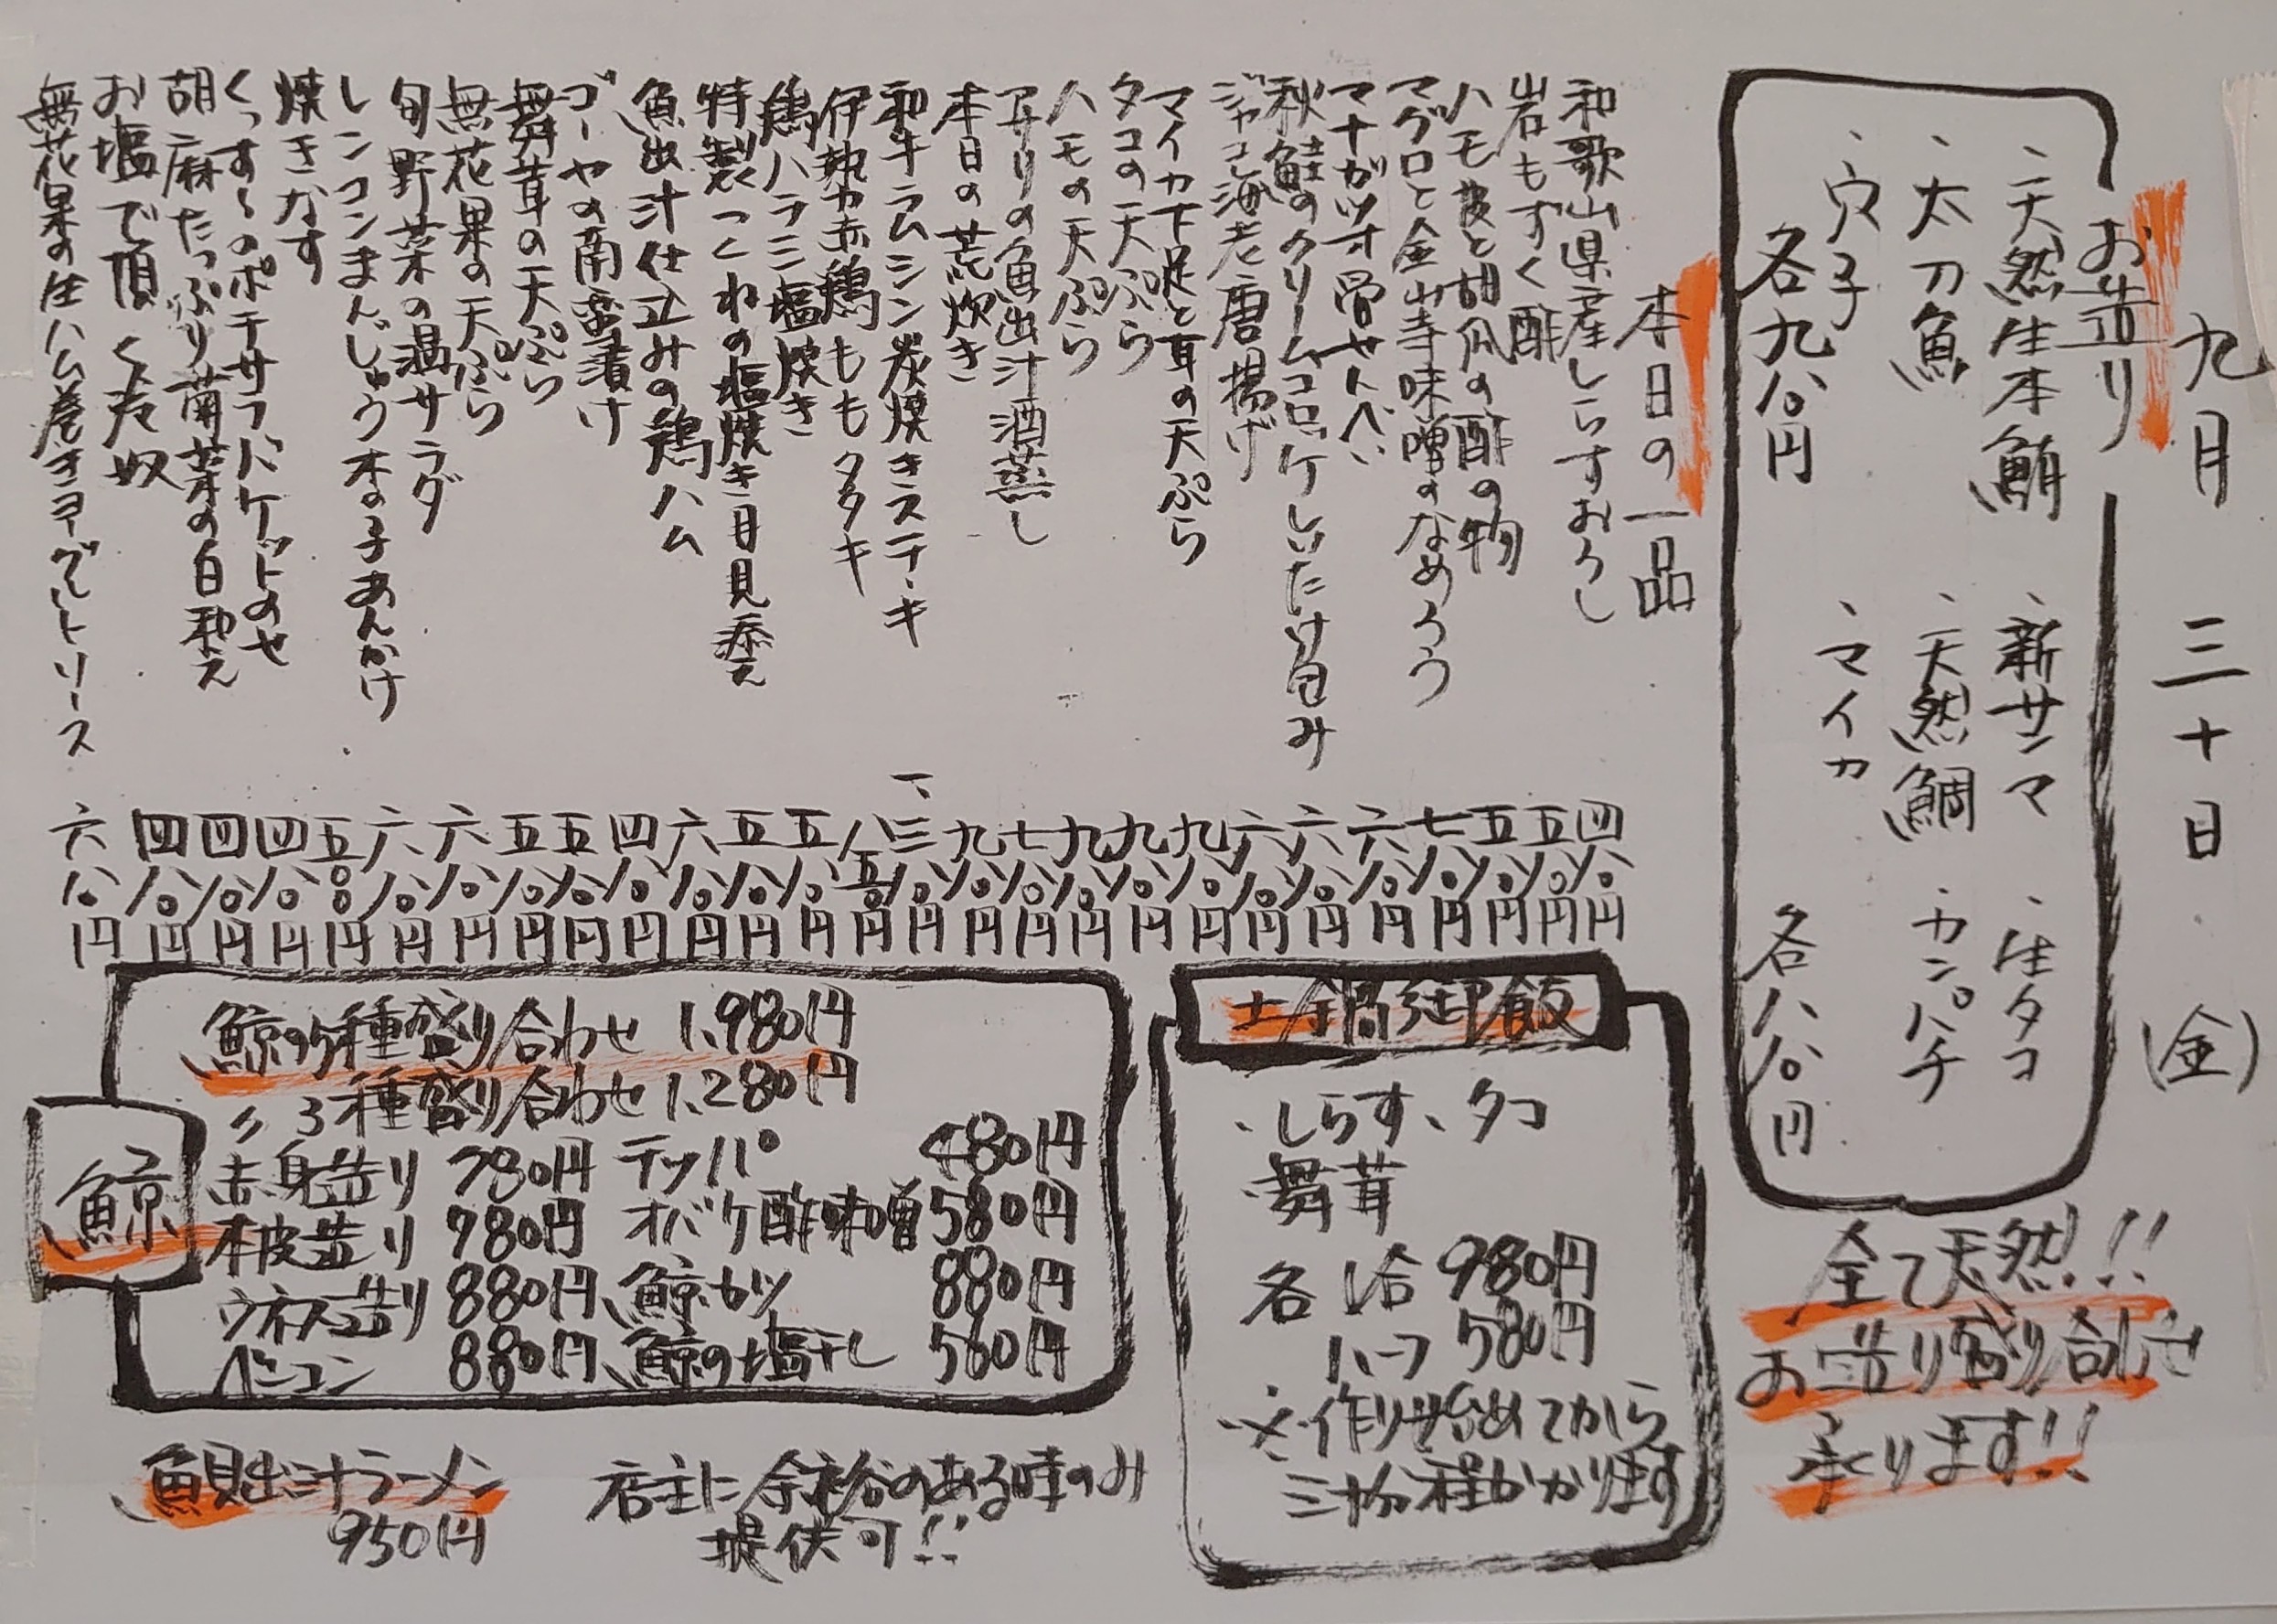 九月三十日(金)
お造り
、天然生本鮪
、新サンマ
、生タコ
、太刀魚
、天然鯛
、カンパチ
、穴子
、マイカ
各九八〇円
各八八〇円
全て天然!!
お造り盛り合わせ
承ります!!
本日の一品
和歌山県産しらすおろし 四八〇円
岩もずく酢 五八〇円
ハモ皮と胡瓜の酢の物 五八〇円
マグロと金山寺味噌のなめろう 七八〇円
マナガツオ骨せんべい 六八〇円
秋鮭のクリームコロッケしいたけ包み 六八〇円
ジャコ海老唐揚げ 六八〇円
マイカ下足と耳の天ぷら 九八〇円
タコの天ぷら 九八〇円
ハモの天ぷら 九八〇円
アサリの魚出汁酒蒸し 七八〇円
本日の荒炊き 九八〇円
和牛ラムシン炭焼きステーキ 一、三八〇円
伊勢赤鶏ももタタキ 八五〇円
鶏ハラミ塩焼き 五八〇円
特製つくねの塩焼き目見添え 五八〇円
魚出汁仕立みの鶏ハム 六八〇円
ゴーヤの南蛮漬け 四八〇円
舞茸の天ぷら 五八〇円
無花果の天ぷら 五八〇円
旬野菜の温サラダ 六八〇円
レンコンまんじゅう木の子あんかけ 六八〇円
焼きなす 五〇〇円
くっす〜のポテサラバケットのせ 四八〇円
胡麻たっぷり菊菜の白和え 四八〇円
お塩で頂く冷奴 四八〇円
無花果の生ハム巻きヨーグルトソース 六八〇円
土鍋御飯
、しらす、タコ
、舞茸
各 1合 980円
ハーフ 580円
※作り始めてから
三十分程かかります
鯨
鯨の5種盛り合わせ 1,980円
〃 3種盛り合わせ 1,280円
赤身造り 780円 テッパ 480円
本皮造り 780円 オバケ酢味噌 580円
ウネス造り 880円、鯨カツ 880円
ベーコン 880円、鯨の塩干し 560円
魚貝出汁ラーメン
950円
店主に余裕のある時のみ
提供可!!